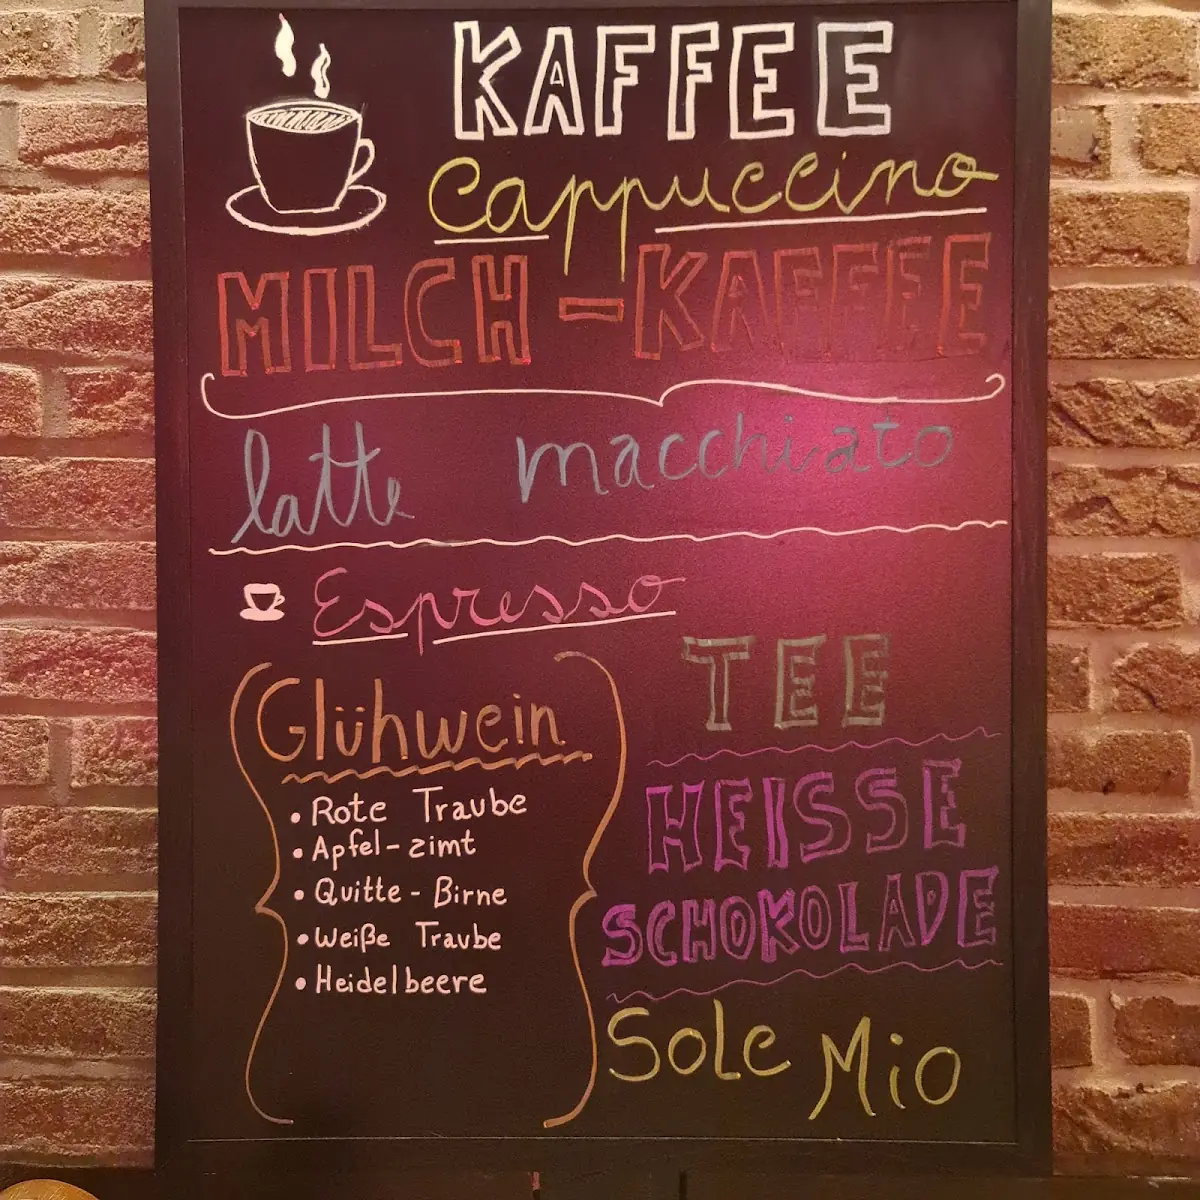 KAFFEE
Cappuccino
MILCH-KAFFEE
latte macchiato
Espresso
Glühwein
• Rote Traube
• Apfel-zimt
• Quitte-Birne
• Weiße Traube
• Heidelbeere
TEE
HEISSE
SCHOKOLADE
Sole Mio